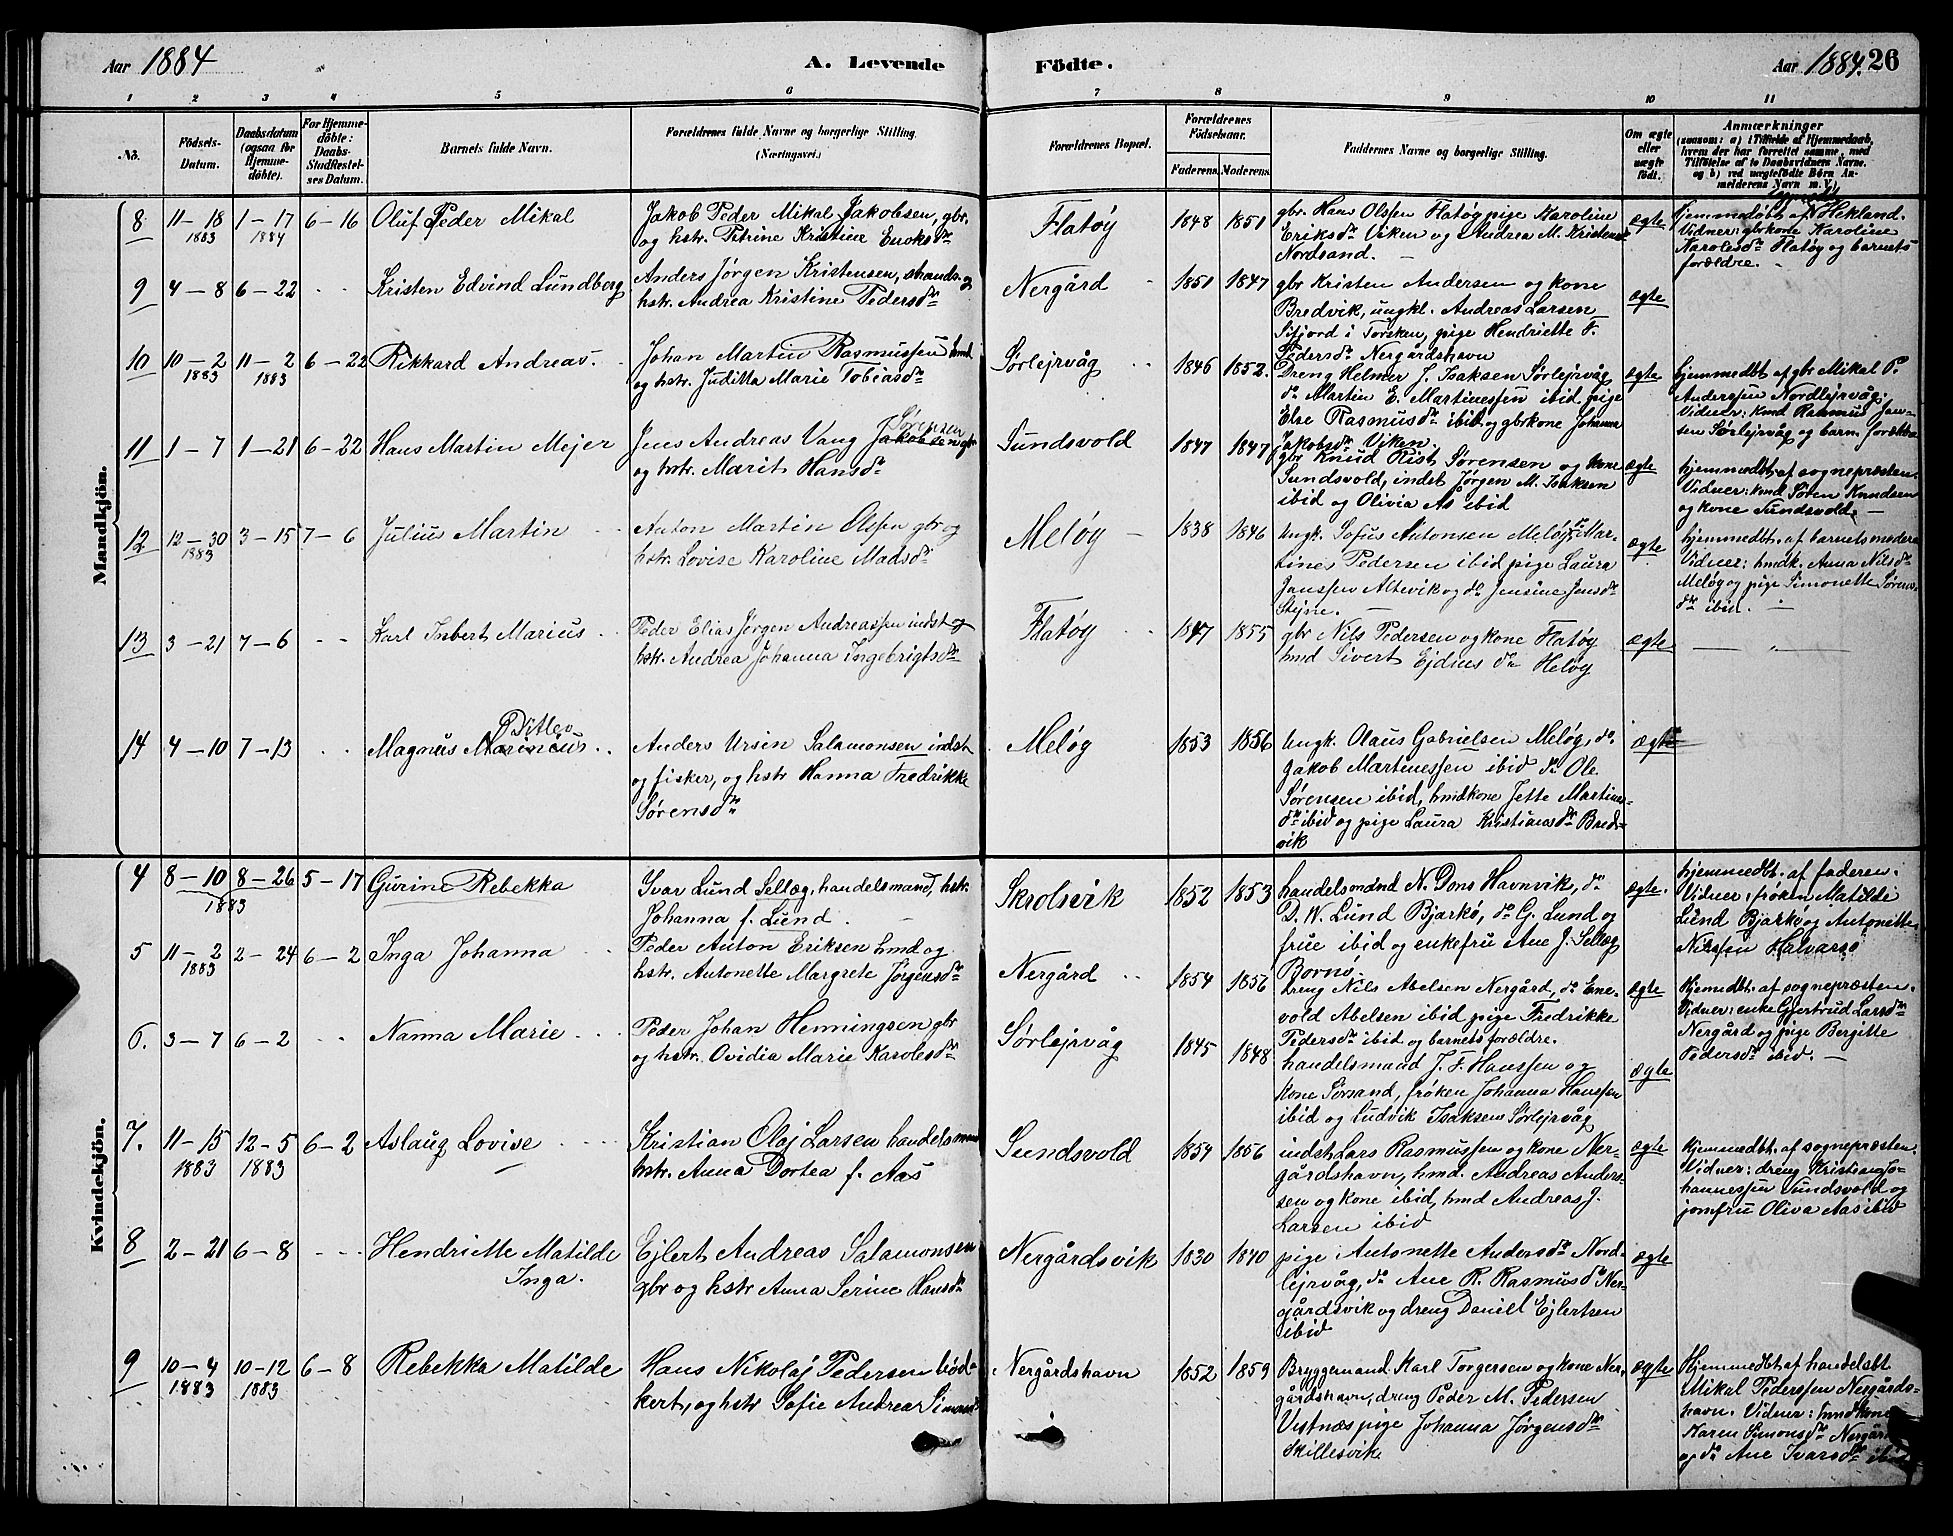 Aar 1884 A. Levende Födte. Aar 1884. 26
1 2 3 4 5 6 7 8 9 10 11
No. Födsels-Datum. Daabsdatum (ogsaa for Hjemmedöbte). For Hjemmedöbte: Daabs-Stadfæstelses Datum. Barnets fulde Navn. Forældrenes fulde Navne og borgerlige Stilling. (Næringsvei.) Forældrenes Bopæl. Forældrenes Födselsaar. Faderens. Moderens. Faddernes Navne og borgerlige Stilling. Om ægte eller uægte födt. Anmærkninger (saasom: a) i Tilfælde af Hjemmedaab, hvem der har forrettet samme, med Tilföielse af to Daabsvidners Navne, og b) ved uægtefödte Börn Anmelderens Navn m. V.)
Mandkjön.
8 11–18 1883 1–17 1884 6–16 Oluf Peder Mikal
Jakob Peder Mikal Jakobsen, gbr.
og hstr. Petrine Kristine Enoksdtr
Flatøy 1848 1851
gbr. Hans Olsen Flatøy pige Karoline
Eriksdtr Viken og Andrea M. Kristensdtr
Nordsand. –
ægte
hjemmedöbt af Hekland.
Vidner: gbrkone Karoline
Karolesdtr Flatøy og barnets
forældre.
9 4–8 6–22 Kristen Edvind Lundberg
Anders Jørgen Kristensen, strands. og
hstr. Andrea Kristine Pedersdtr
Nergård 1851 1847
gbr Kristen Andersen og kone
Bredvik, ungkl. Andreas Larsen
Sifjord i Torsken, pige Hendriette F.
Pedersdtr Nergårdshavn
ægte
10 10–2 1883 11–2 1883 6–22 Rikkard Andreas.
Johan Martin Rasmussen hmd
og hstr. Juditta Marie Tobiasdtr
Sørlejrvåg 1846 1852.
Dreng Helmer J. Isaksen Sørlejrvåg
do Martin E. Martinessen ibid, pige
Else Rasmusdtr ibid og gbrkone Johanna
Jakobsdtr Viken.
ægte
hjemmedbt. af gbr Mikal P.
Anderssen Nordlejrvåg:
Vidner: kmd Rasmus Jansen
Sørlejrvåg og barn. forældre
11 1–7 1–21 6–22 Hans Martin Mejer
Sørensen
Jens Andreas Vang Jakobsen gbr
og hstr. Marit Hansdtr
Sundsvold 1847 1847
gbr Knud Rist Sørensen og kone
Sundsvold, indst Jørgen M. Isaksen
ibid og Olivia Ås ibid
ægte
hjemmedbt. af sognepræsten.
Vidner: kmd Søren Knudsen
og kone Sundsvold. –
12 12–30 1883 3–15 7–6 Julius Martin
Anton Martin Olsen gbr og
hstr. Lovise Karoline Madsdtr
Meløy – 1838 1846
Ungk. Sofus Antonsen Meløy, do Martines
Pedersen ibid pige Laura
Janssen Altevik og do Jensine Jensdtr
Stejne. –
ægte
hjemmedbt. af barnets moder
Vidner: hmdk. Anna Nilsdtr
Meløy og pige Simonette Sørensdtr
ibid. –
13 3–21 7–6 Karl Inbert Marius
Peder Elias Jørgen Andreassen indst og
hstr. Andrea Johanna Ingebrigtsdtr
Flatøy 1847 1855
gbr Nils Pedersen og kone Flatøy
hmd Sivert Ejdius do Heløy
ægte
14 4–10 7–13 Ditlev
Magnus Marinius
Anders Ursin Salamonsen indst
og fisker, og hstr Hanna Fredrikke
Sørensdtr
Meløy 1853 1856
Ungk. Olaus Gabrielsen Meløy, do.
Jakob Martinessen ibid do Ole
Sørensen ibid, hmdkone Jette Martinesdtr
ibid og pige Laura Kristiansdtr Bredvik
ægte
Kvindekjön.
4 8–10 8–26 1883 5–17 Gurine Rebekka
Ivar Lund Sellæg, handelsmand, hstr.
Johanna f. Lund.
Skrolsvik 1852 1853
handelsmand N. Dons Havnvik, do
D. W. Lund Bjarkö, do G. Lund og
frue ibid og enkefru Ane J. Sellæg
Bornö.
ægte.
hjemmedbt. af faderen.
Vidner: frøken Matilde
Lund Bjarkö og Antonette
Nilssen Halvarsö
5 11–2 1883 2–24 6–2 Inga Johanna
Peder Anton Eriksen hmd og
hstr. Antonette Margrete Jørgensdtr
Nergård 1854 1856
dreng Nils Abelsen Nergård, do Enevold
Abelsen ibid pige Fredrikke
Pedersdtr ibid og barnets forældre.
ægte
Hjemedbt. af sognepræsten.
Vidner: enke Gjertrud Larsdtr
Nergård og pige Bergitte
Pedersdtr ibid. –
6. 3–7 6–2 Nanna Marie
Peder Johan Henningsen gbr
og hstr. Ovidia Marie Karolesdtr
Sørlejrvåg 1845 1848
handelsmand J. F. Hanssen og
kone Sørsand, frøken Johanna Hanssen
ibid og Ludvik Isaksen Sørlejrvåg
ægte
7. 11–15 1883 12–5 1883 6–2 Aslaug Lovise
Kristian Olaj Larsen handelsmand
hstr. Anna Dortea f. Aas
Sundsvold 1854 1856
indst Lars Rasmussen og kone Nergårdshavn,
hmd. Andreas Anderssen
og kone ibid, hmd Andreas J.
Larsen ibid
ægte
Hjemmedbt. af sognepræsten.
Vidner: dreng Kristian Johannessen
Sundsvold og
jomfru Oliva Aas ibid
8 2–21 6–8 Hendriette Matilde
Inga.
Ejlert Andreas Salamonsen
gbr og hstr Anna Serine Hansdtr
Nergårdsvik 1830 1840
pige Antonette Andersdtr Nordlejrvåg,
do Ane R. Rasmusdtr Nergårdsvik
og dreng Daniel Ejlertsen
ibid
ægte
9 10–4 1883 10–12 1883 6–8 Rebekka Matilde
Hans Nikolaj Pedersen bödkert,
og hstr Sofie Andrea Simonsd
Nergårdshavn 1852 1859
Bryggemand Karl Torgersen og kone Nergårdshavn,
dreng Peder M. Pedersen
Vestnæs pige Johanna Jørgensdtr
Skillesvik.
ægte
Hjemmedbt. af handelsbt
Mikal Pederssen Nergårdshavn.
Vidner: hmdkone
Karen Simonsdtr Nergård
og do Ane Ivarsdtr ibid